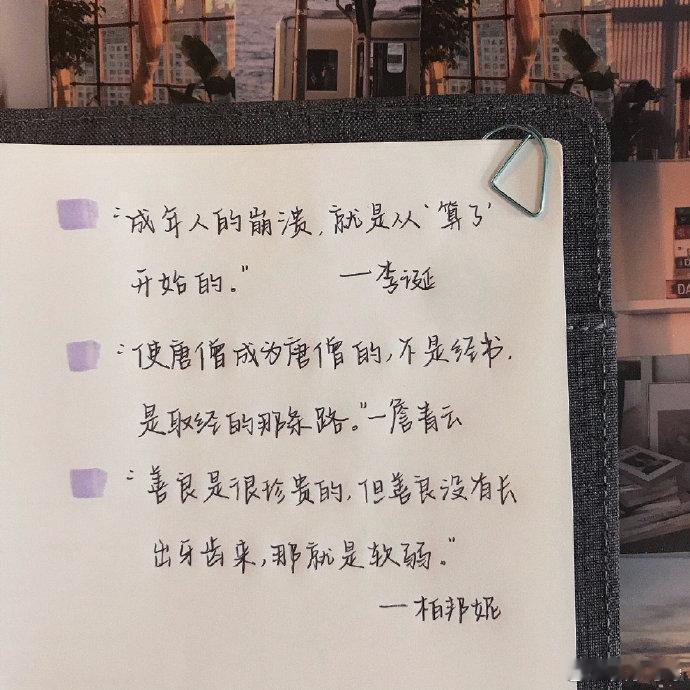 “成年人的崩溃，就是从‘算了’
开始的。” —李诞
“使唐僧成为唐僧的，不是经书，
是取经的那条路。”—詹青云
“善良是很珍贵的，但善良没有长
出牙齿来，那就是软弱。”
—柏邦妮
DA